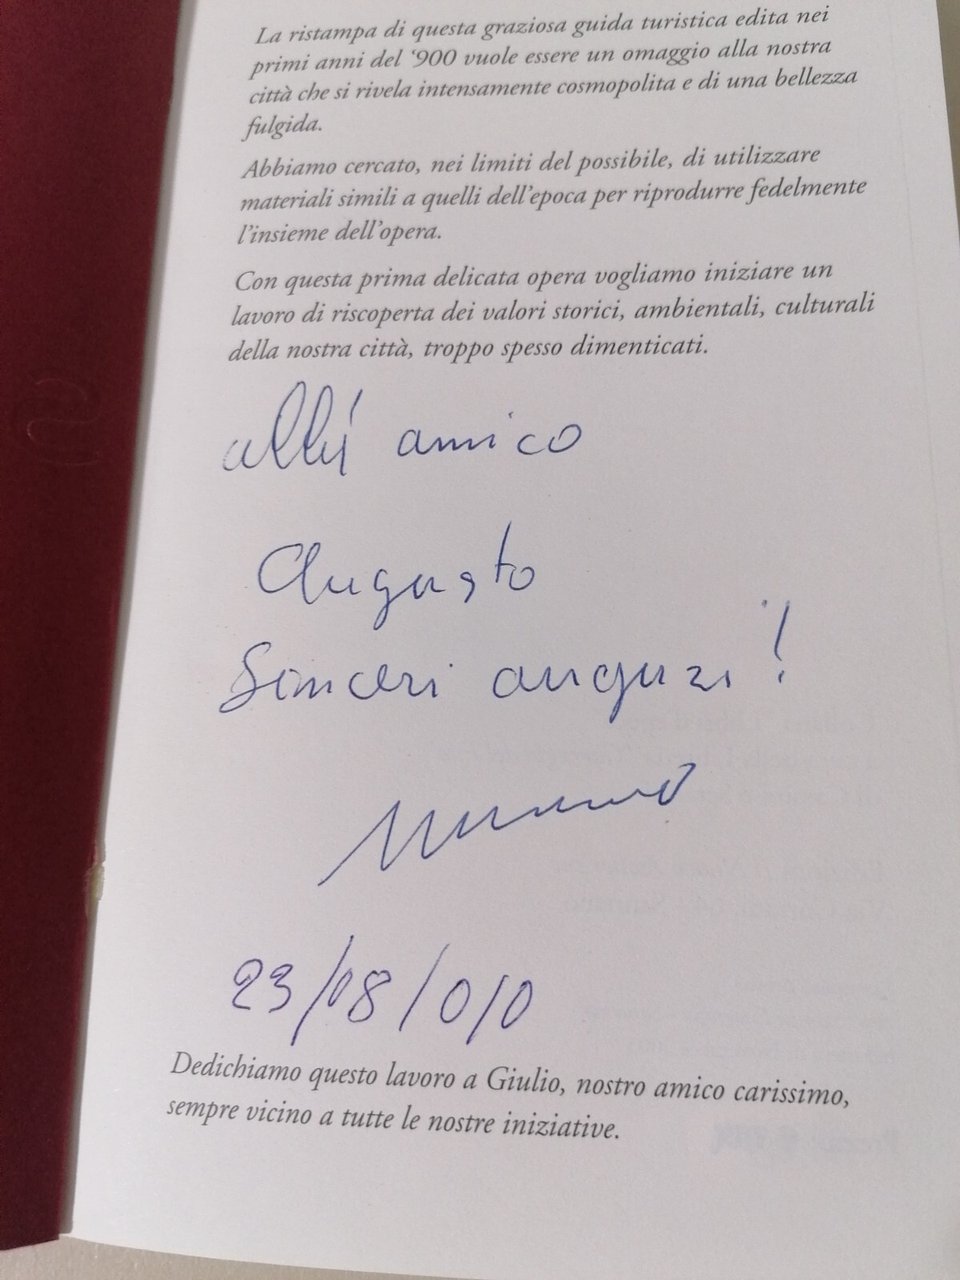 La ristampa di questa graziosa guida turistica edita nei
primi anni del ‘900 vuole essere un omaggio alla nostra
città che si rivela intensamente cosmopolita e di una bellezza
fulgida.
Abbiamo cercato, nei limiti del possibile, di utilizzare
materiali simili a quelli dell’epoca per riprodurre fedelmente
l’insieme dell’opera.
Con questa prima delicata opera vogliamo iniziare un
lavoro di riscoperta dei valori storici, ambientali, culturali
della nostra città, troppo spesso dimenticati.
all' amico
Augusto
Sinceri auguri!
23/08/0/0
Dedichiamo questo lavoro a Giulio, nostro amico carissimo,
sempre vicino a tutte le nostre iniziative.